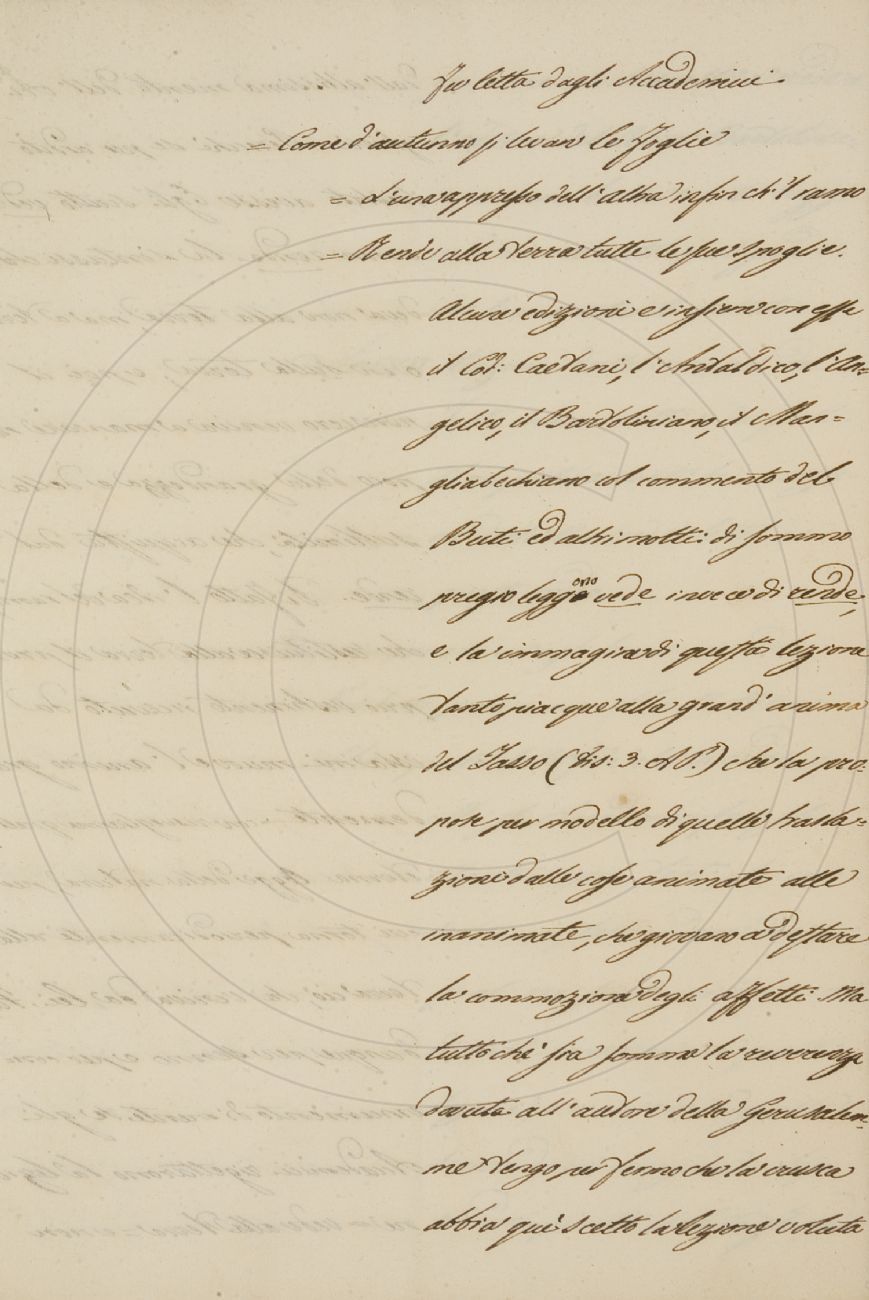 fu letta dagli Accademici.
= Come d'autunno si levan le foglie
= L'una appresso dell'altra infin ch'l ramo
= Rende alla terra tutte le sue spoglie.
Alcune edizioni e insieme con esse
il Cod: Caetani, l'Antaldico, l'An=
gelico, il Bartoliniano, il Man=
gliabechiano col commento del
Buti ed altri molti di sommo
pregio leggono vede invece di rende,
e la immagine di questa lezione
tanto piacque alla grand'anima
del Tasso (Dis: 3. AP.) che la pro=
pose per modello di quelle trasla=
zioni dalle cose animate alle
inanimate, che giovano a destare
la commozione degli affetti. Ma
tutto che sia somma la reverenza
dovuta all'autore della Gerusalem=
me tengo per fermo che la crusca
abbia quì scelto la lezione voluta